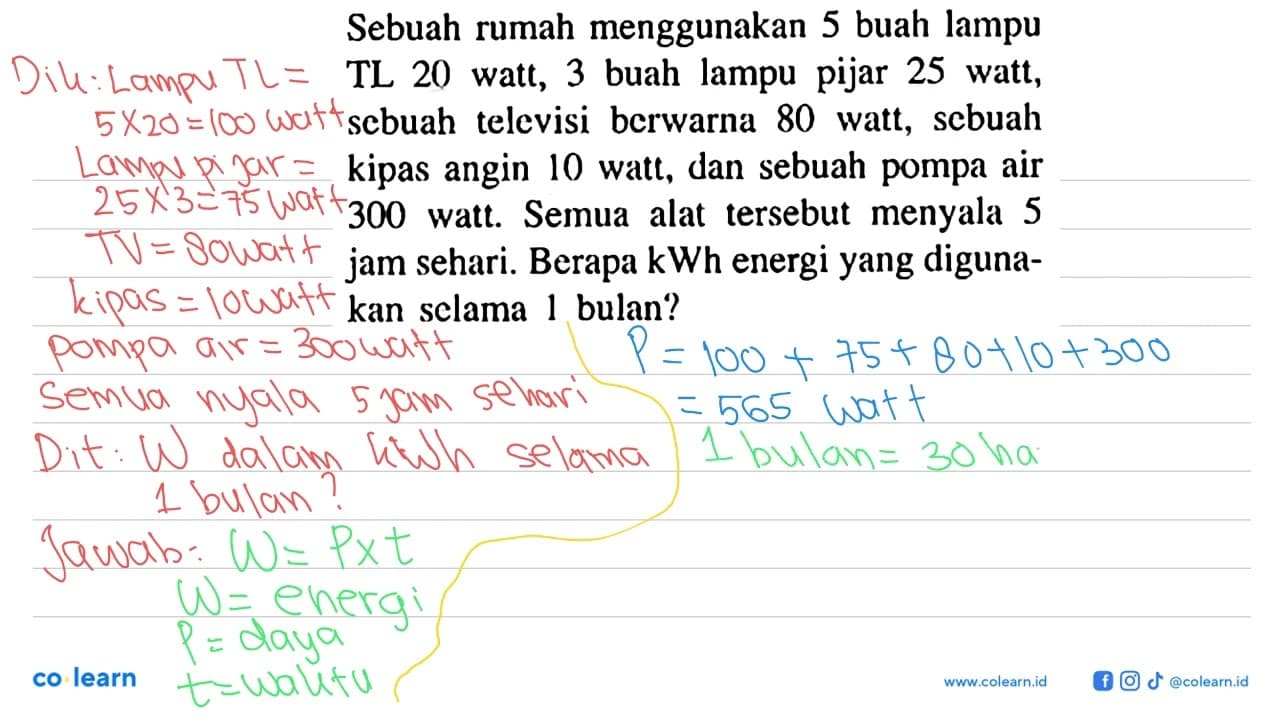 Sebuah rumah menggunakan 5 buah lampu
TL 20 watt, 3 buah lampu pijar 25 watt,
sebuah televisi berwarna 80 watt, sebuah
kipas angin 10 watt, dan sebuah pompa air
300 watt. Semua alat tersebut menyala 5
jam sehari. Berapa kWh energi yang diguna-
kan selama 1 bulan?
Dik: Lampu TL =
5 x 20 = 100 watt
Lampu pijar =
25 x 3 = 75 watt
TV = 80 watt
kipas = 10 watt
pompa air = 300 watt
semua nyala 5 jam sehari
Dit: W dalam kWh selama
1 bulan?
Jawab: W = P x t
W = energi
P = daya
t = waktu
P = 100 + 75 + 80 + 10 + 300
= 565 watt
1 bulan = 30 ha
co learn
www.colearn.id
@colearn.id